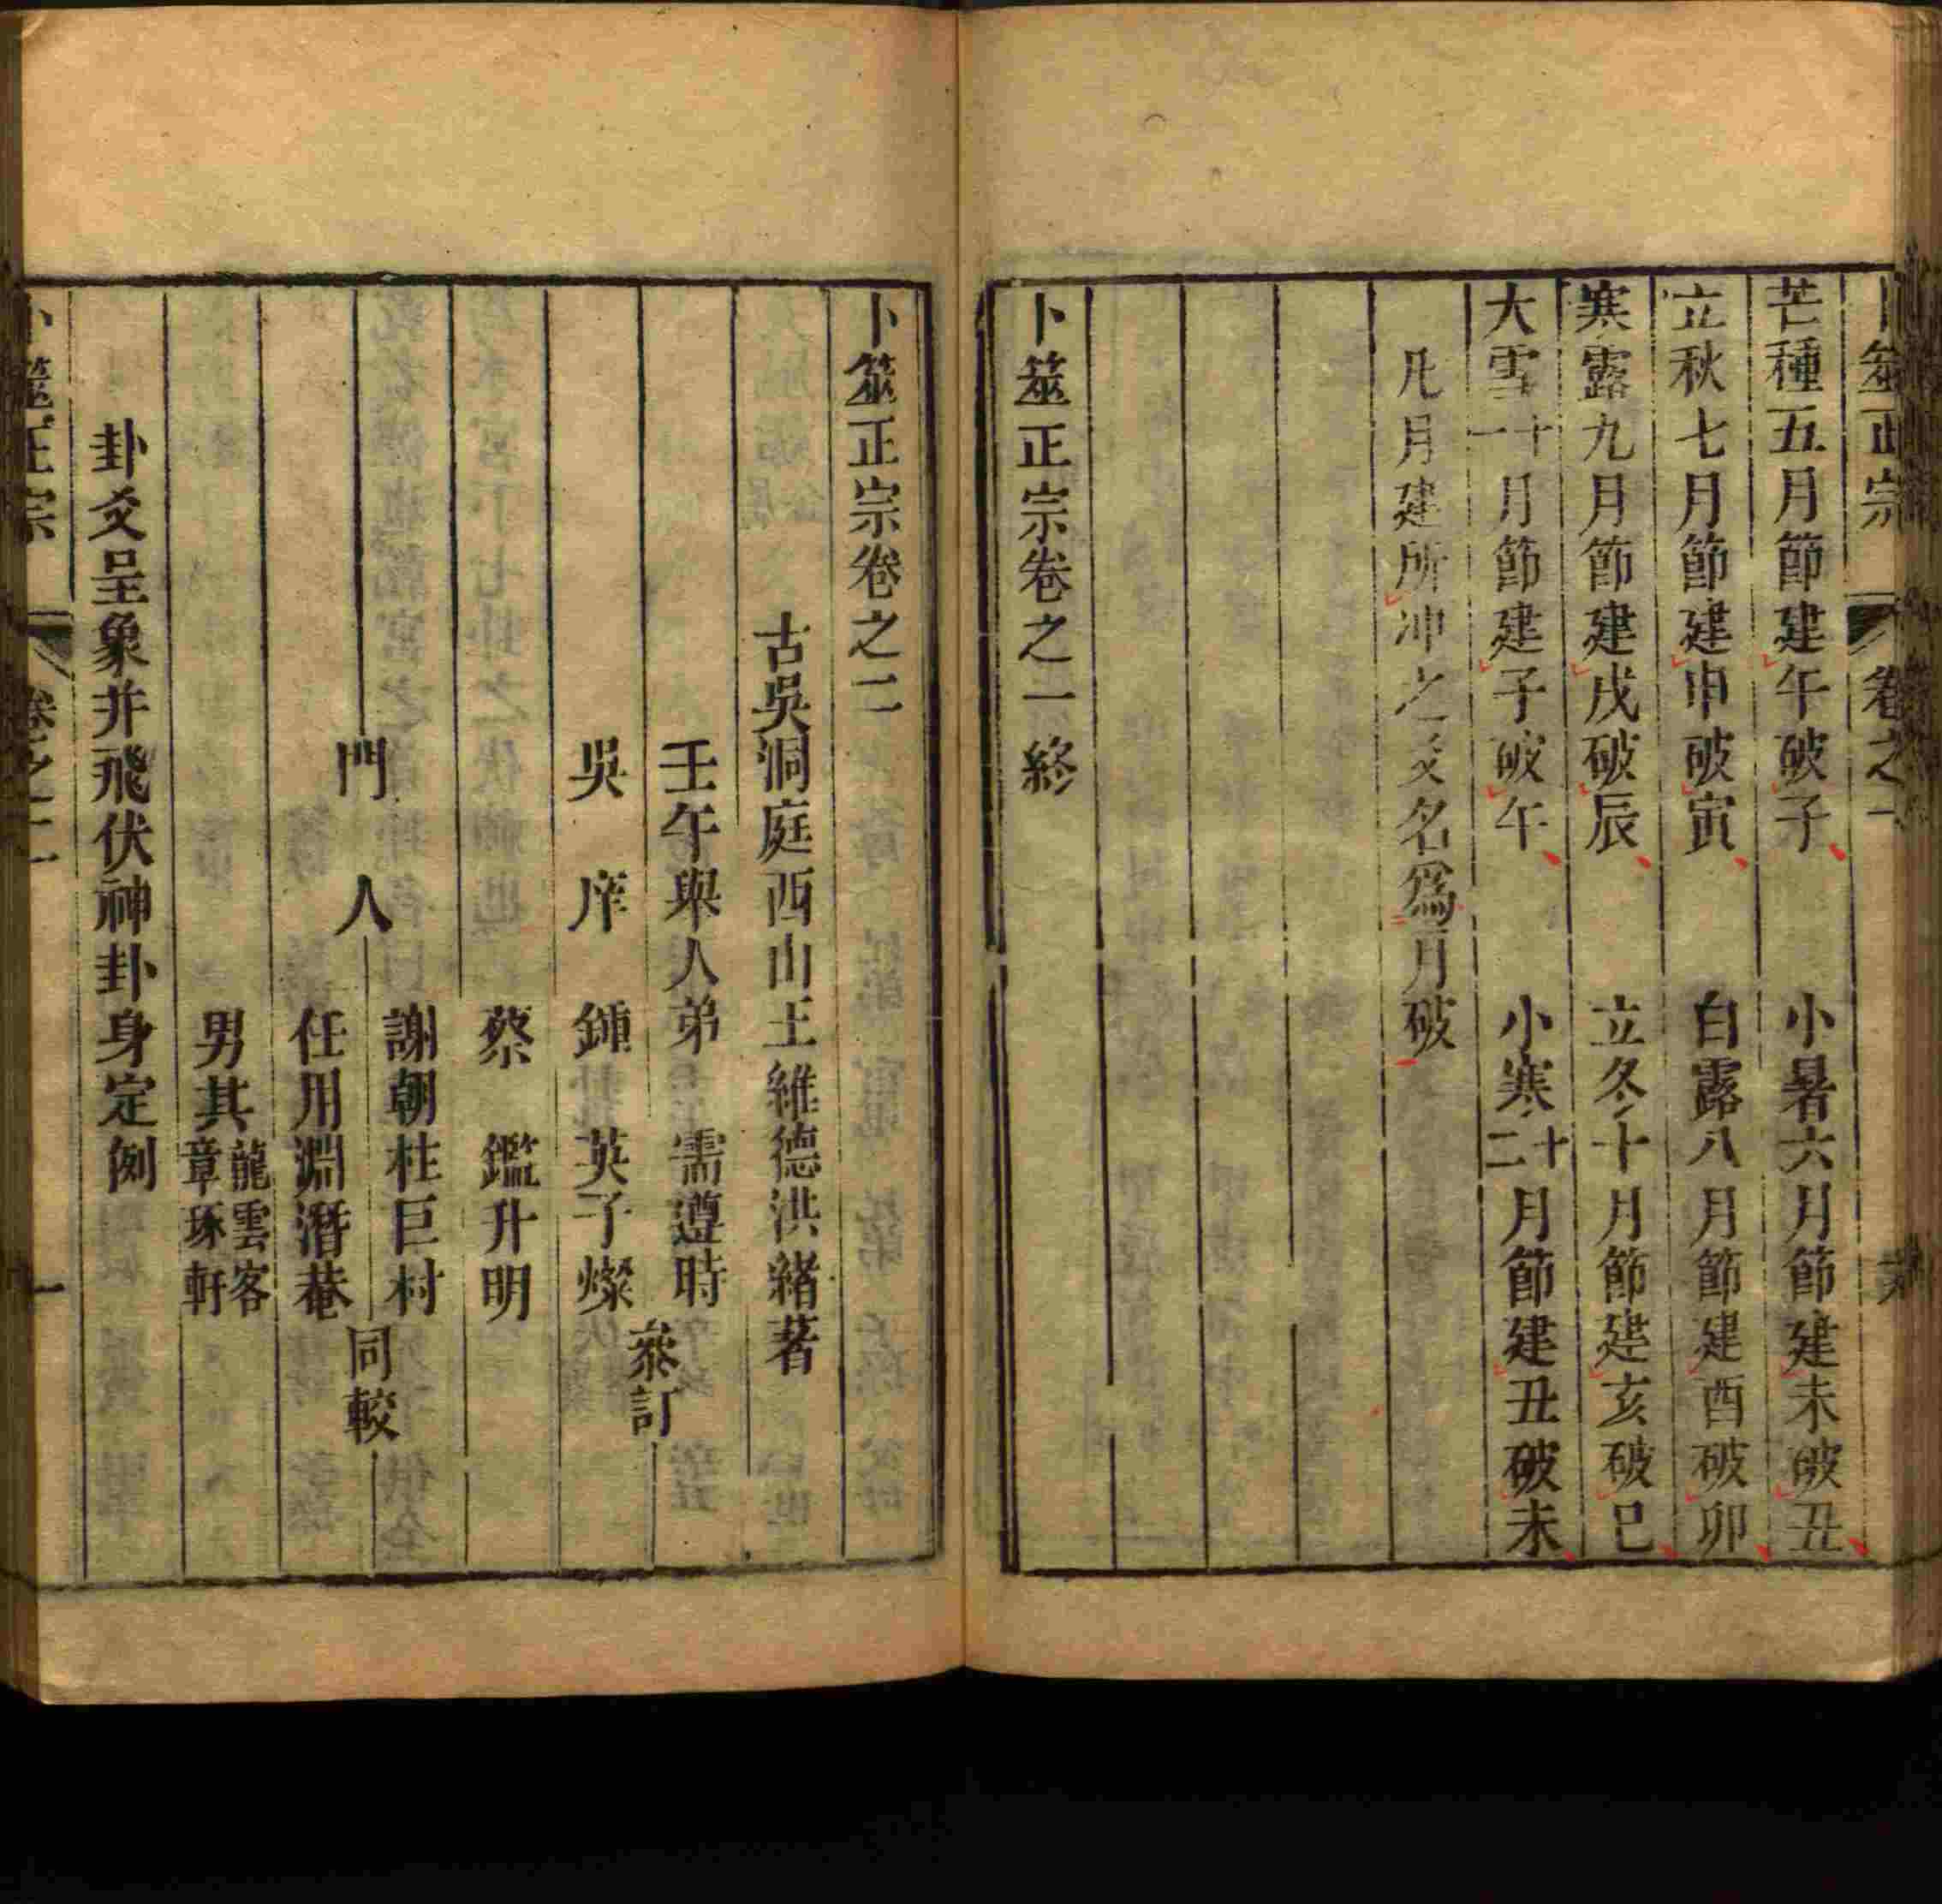 卜筮正宗 卷之一
芒種五月節建午破子 小暑六月節建未破丑
立秋七月節建申破寅 白露八月節建酉破卯
寒露九月節建戌破辰 立冬十月節建亥破巳
大雪十一月節建子破午 小寒十二月節建丑破未
凡月建所冲之爻名爲月破
卜筮正宗卷之一終
卜筮正宗卷之二
古吳洞庭西山王維德洪緒著
壬午舉人弟 需遵時
吳庠 鍾英子燦
參訂
蔡鑑升明
謝朝柱巨村
門人
同較
任用淵潛菴
男其龍雲客
章琢軒
卦爻呈象并飛伏神卦身定例
卜筮正宗 卷之二 一